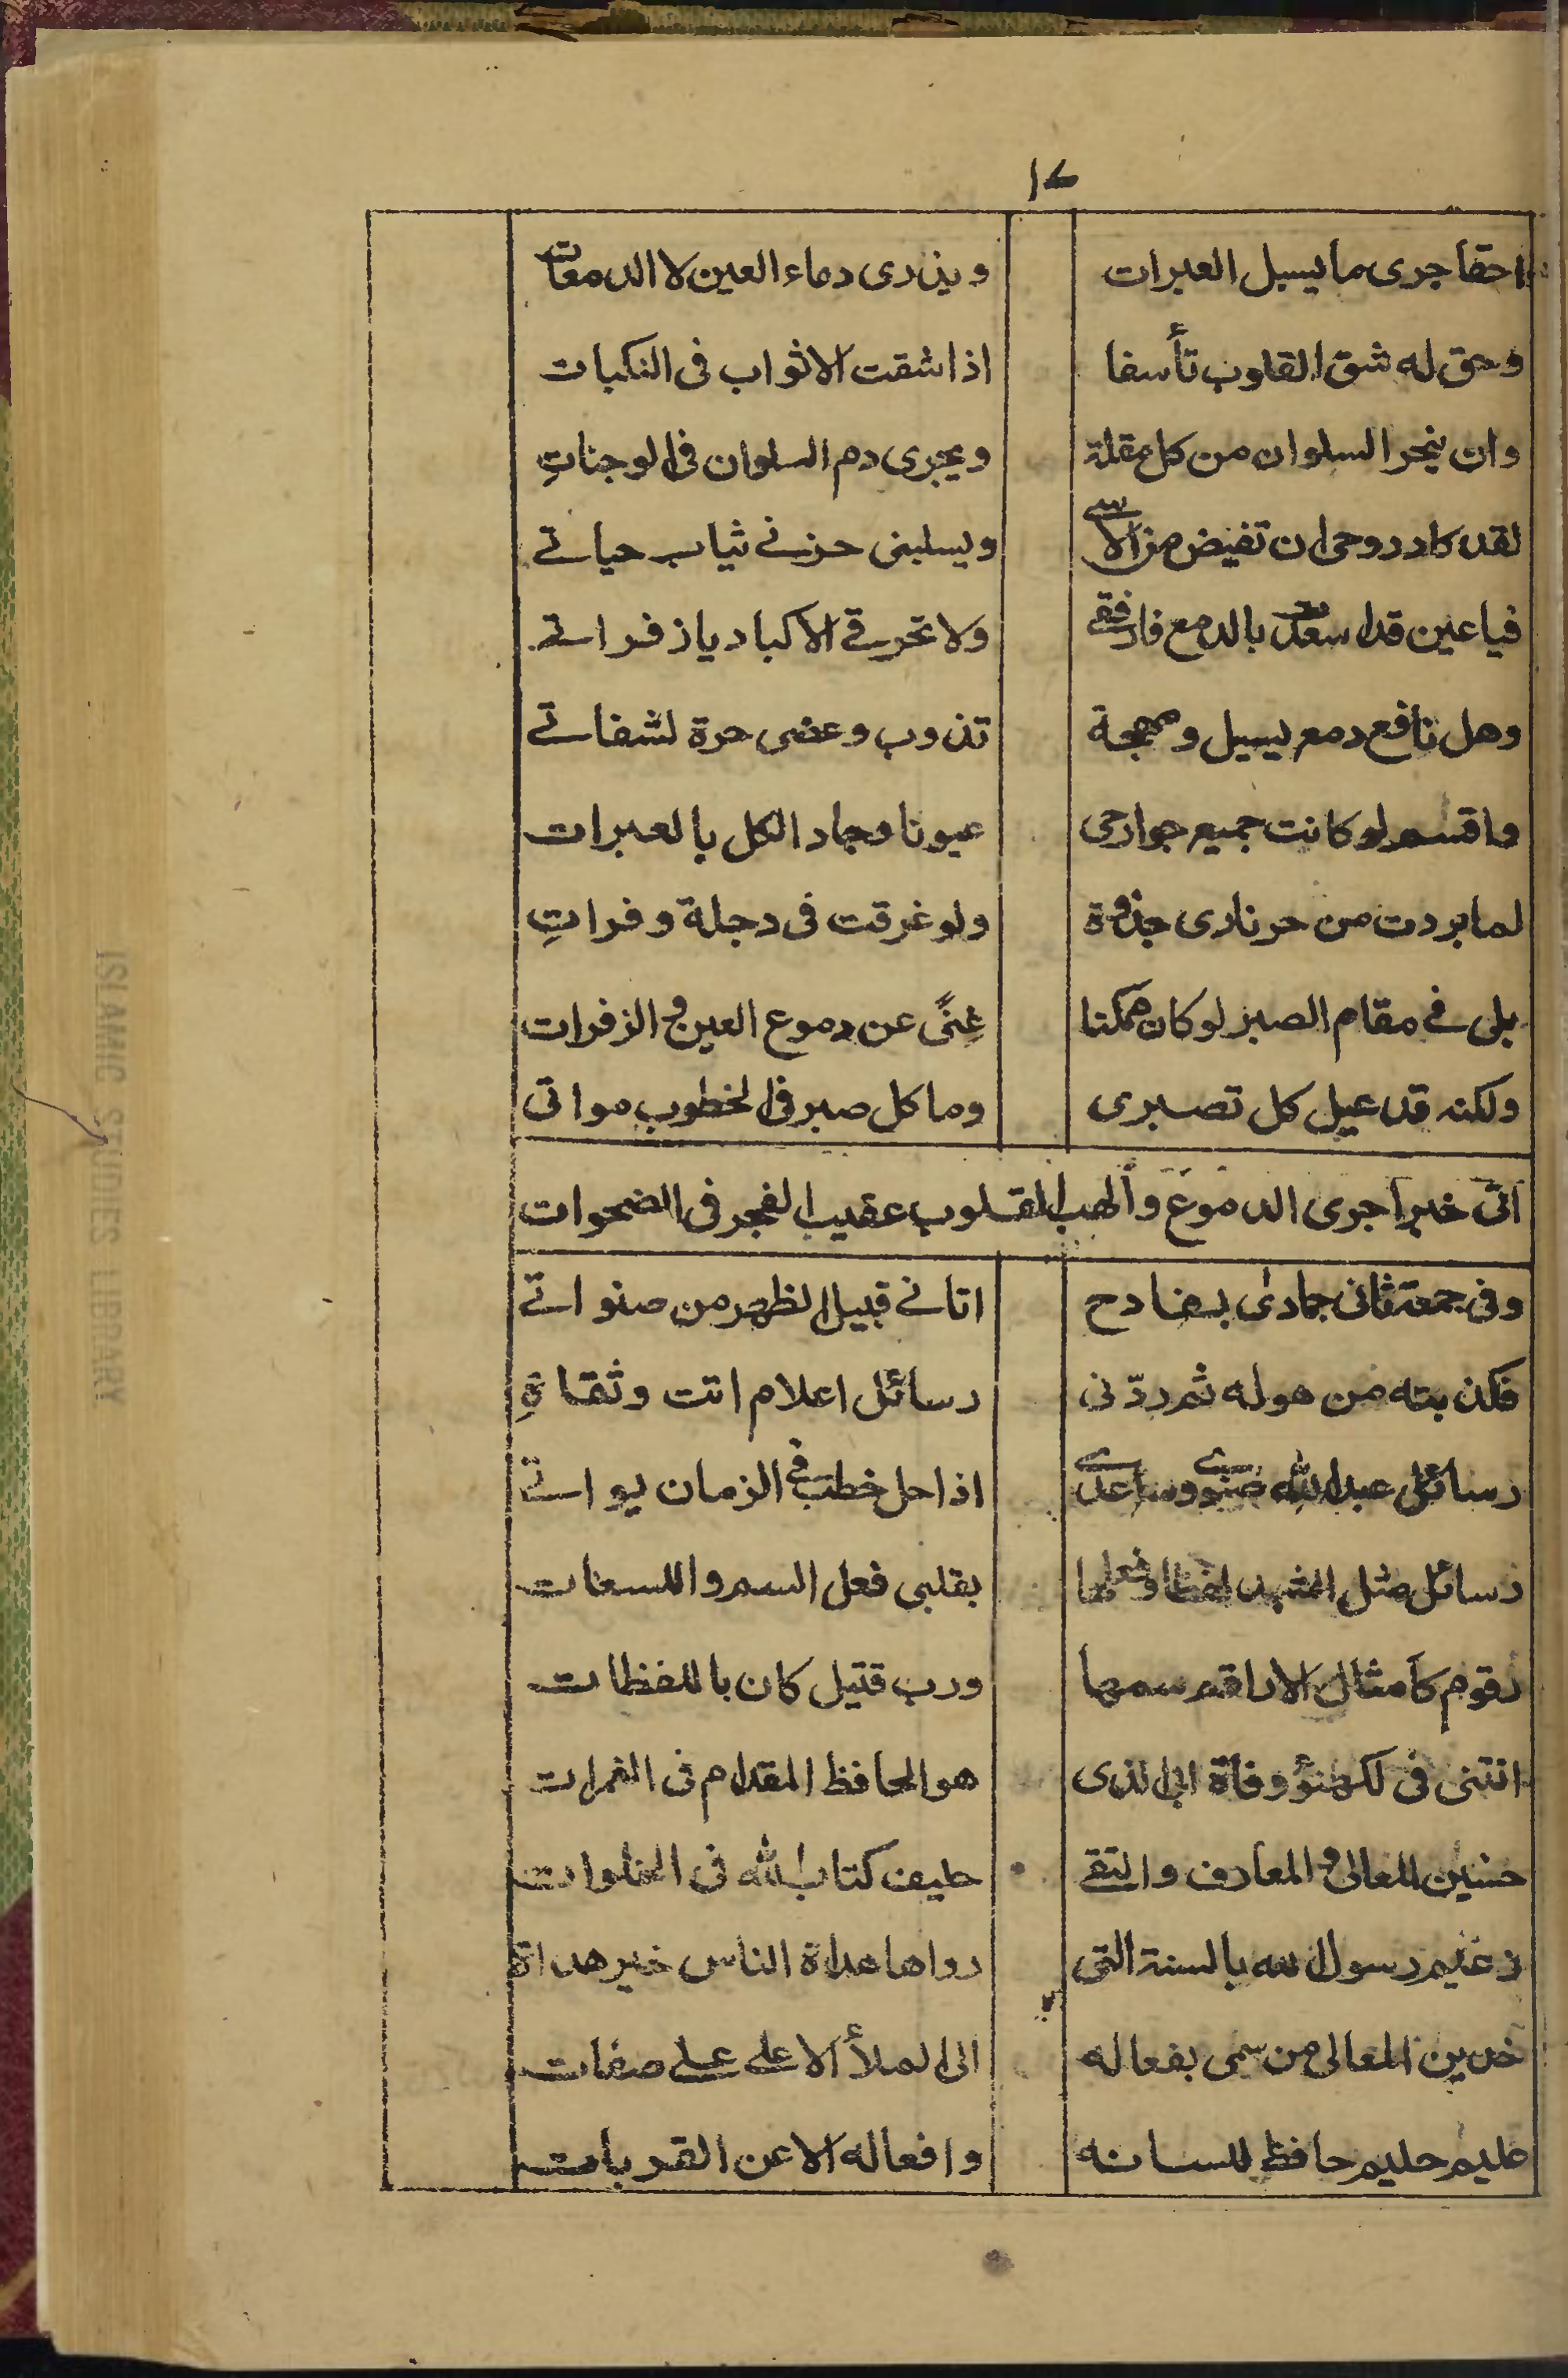 ١٤
احقا جرى ما يسبل العبرات ويذرى دماء العين لا الدمعات
وحق له شق القلوب تأسفا اذا شقت الاثواب فى النكبات
وان ينحر السلوان من كل مقلة ويجرى دم السلوان فى الوجناتِ
لقد كاد روحى ان تفيض من الاسے ويسلبنى حزنے ثياب حياتے
فيا عين قد اسعدت بالدمع فارفقے ولا تحرقے الاكباد يا زفراتے
وهل نافع دمع يسيل ومهجة تذوب وعضى حرة لشفاتے
واقسم لو كانت جميع جوارحى عيونا وجاد الكل بالعبرات
لما بردت من حر نارى جذوة ولو غرقت فى دجلة وفراتِ
بلى فے مقام الصبر لو كان ممكنا غِنًى عن دموع العين والزفرات
ولكنه قد عيل كل تصبرى وما كل صبر فى الخطوب مواتى
اتى خبر اجرى الدموع وألهب القلوب عقيب الفجر فى الضحوات
وفى جمعة ثانى جمادى بفادح اتانے قبيل الظهر من صنواتے
فكذبته من هوله ثم ردّنى رسائل اعلام اتت وثقاةِ
رسائل عبد الله صنوے وساعدے اذا حل خطب فے الزمان يواتے
رسائل مثل الشهد لفظا وفعلها بقلبى فعل السم واللسعات
رقوم كأمثال الاراقم سمها ورب قتيل كان باللفظات
اتتنى فى لكهنؤ وفاة ابى الذى هو الحافظ المقدام فى الغمرات
حسين المعالى والمعارف والتقے حليف كتاب الله فى الخلوات
زعيم رسول الله بالسنة التى رواها هداة الناس خير هداة
خدين المعالى من سمى بفعاله الى الملأ الاعلے علے صفات
عليم حليم حافظ للسانه وافعاله الا عن القربات
ISLAMIC STUDIES LIBRARY